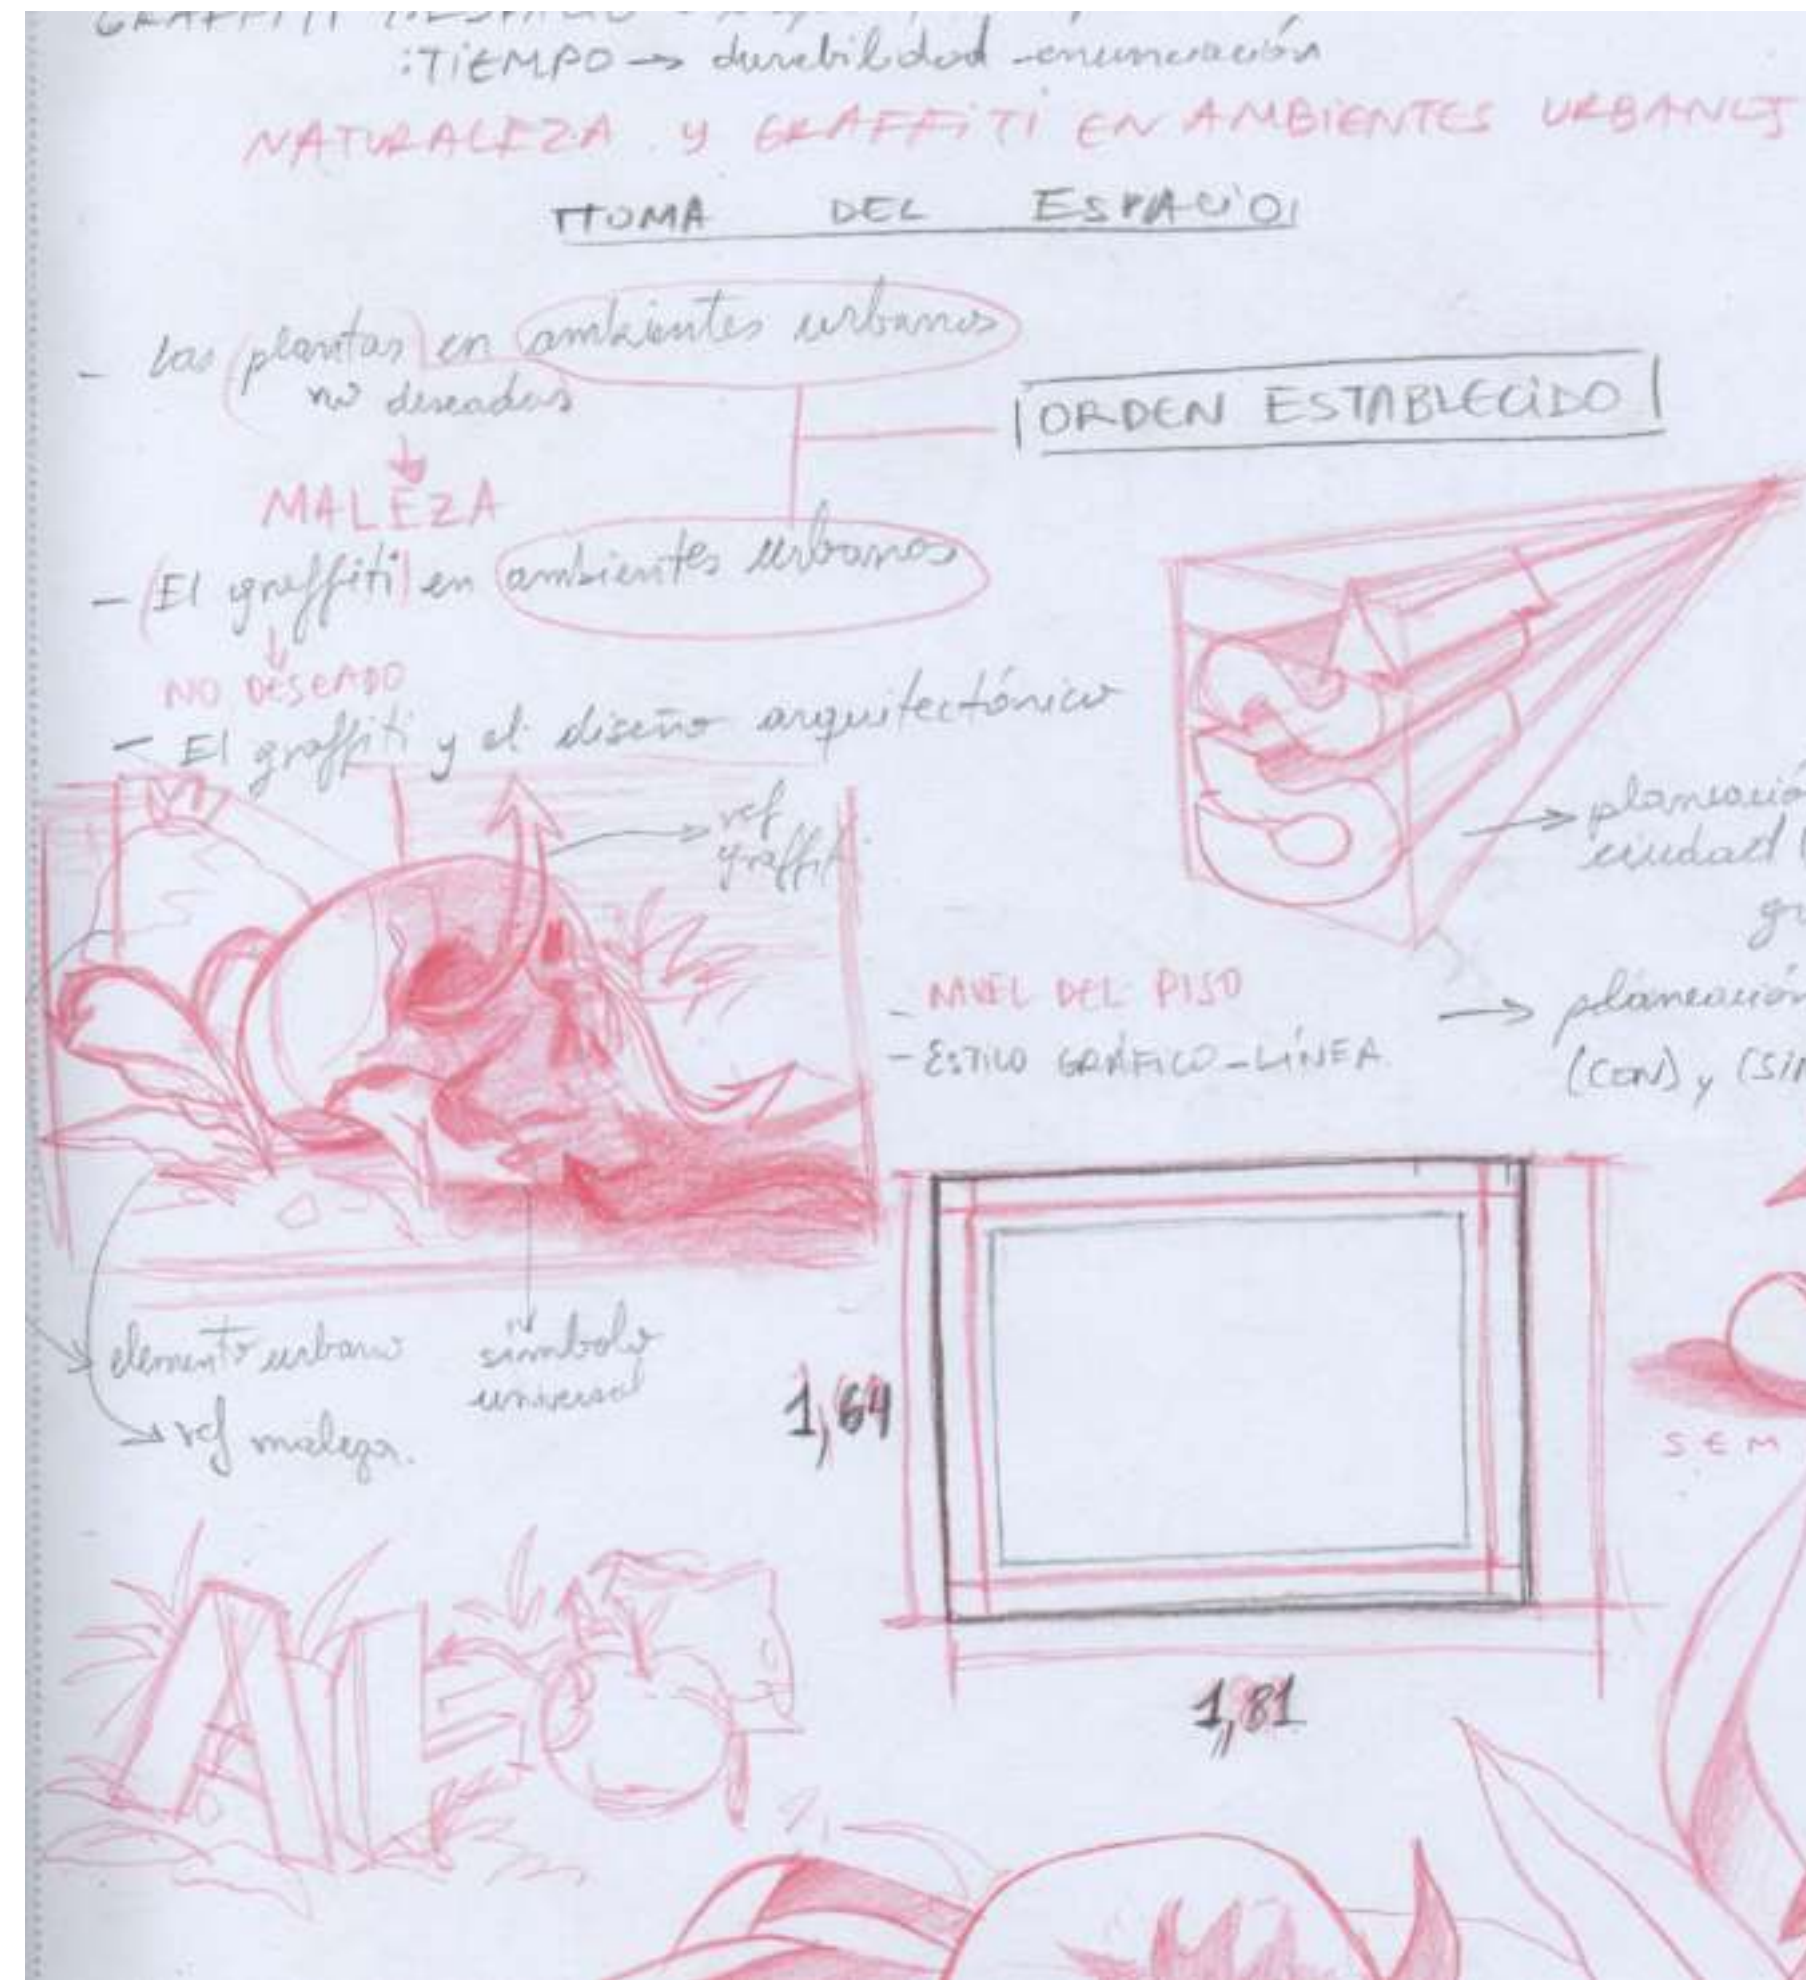 GRAFFITI : ESPACIO
:TIEMPO → durabilidad - enunciación
NATURALEZA y GRAFFITI EN AMBIENTES URBANOS
TOMA DEL ESPACIO
- las (plantas) en ambientes urbanos
no deseadas
ORDEN ESTABLECIDO
MALEZA
- (El graffiti) en ambientes urbanos
NO DESEADO
- El graffiti y el diseño arquitectónico
→ ref
graffiti
→ planeación
ciudad (
- NIVEL DEL PISO
→ planeación
- ESTILO GRÁFICO - LÍNEA
(CON) y (SIN
elemento urbano
símbolo
universal
→ ref maleza.
1,64
SEM
1,81